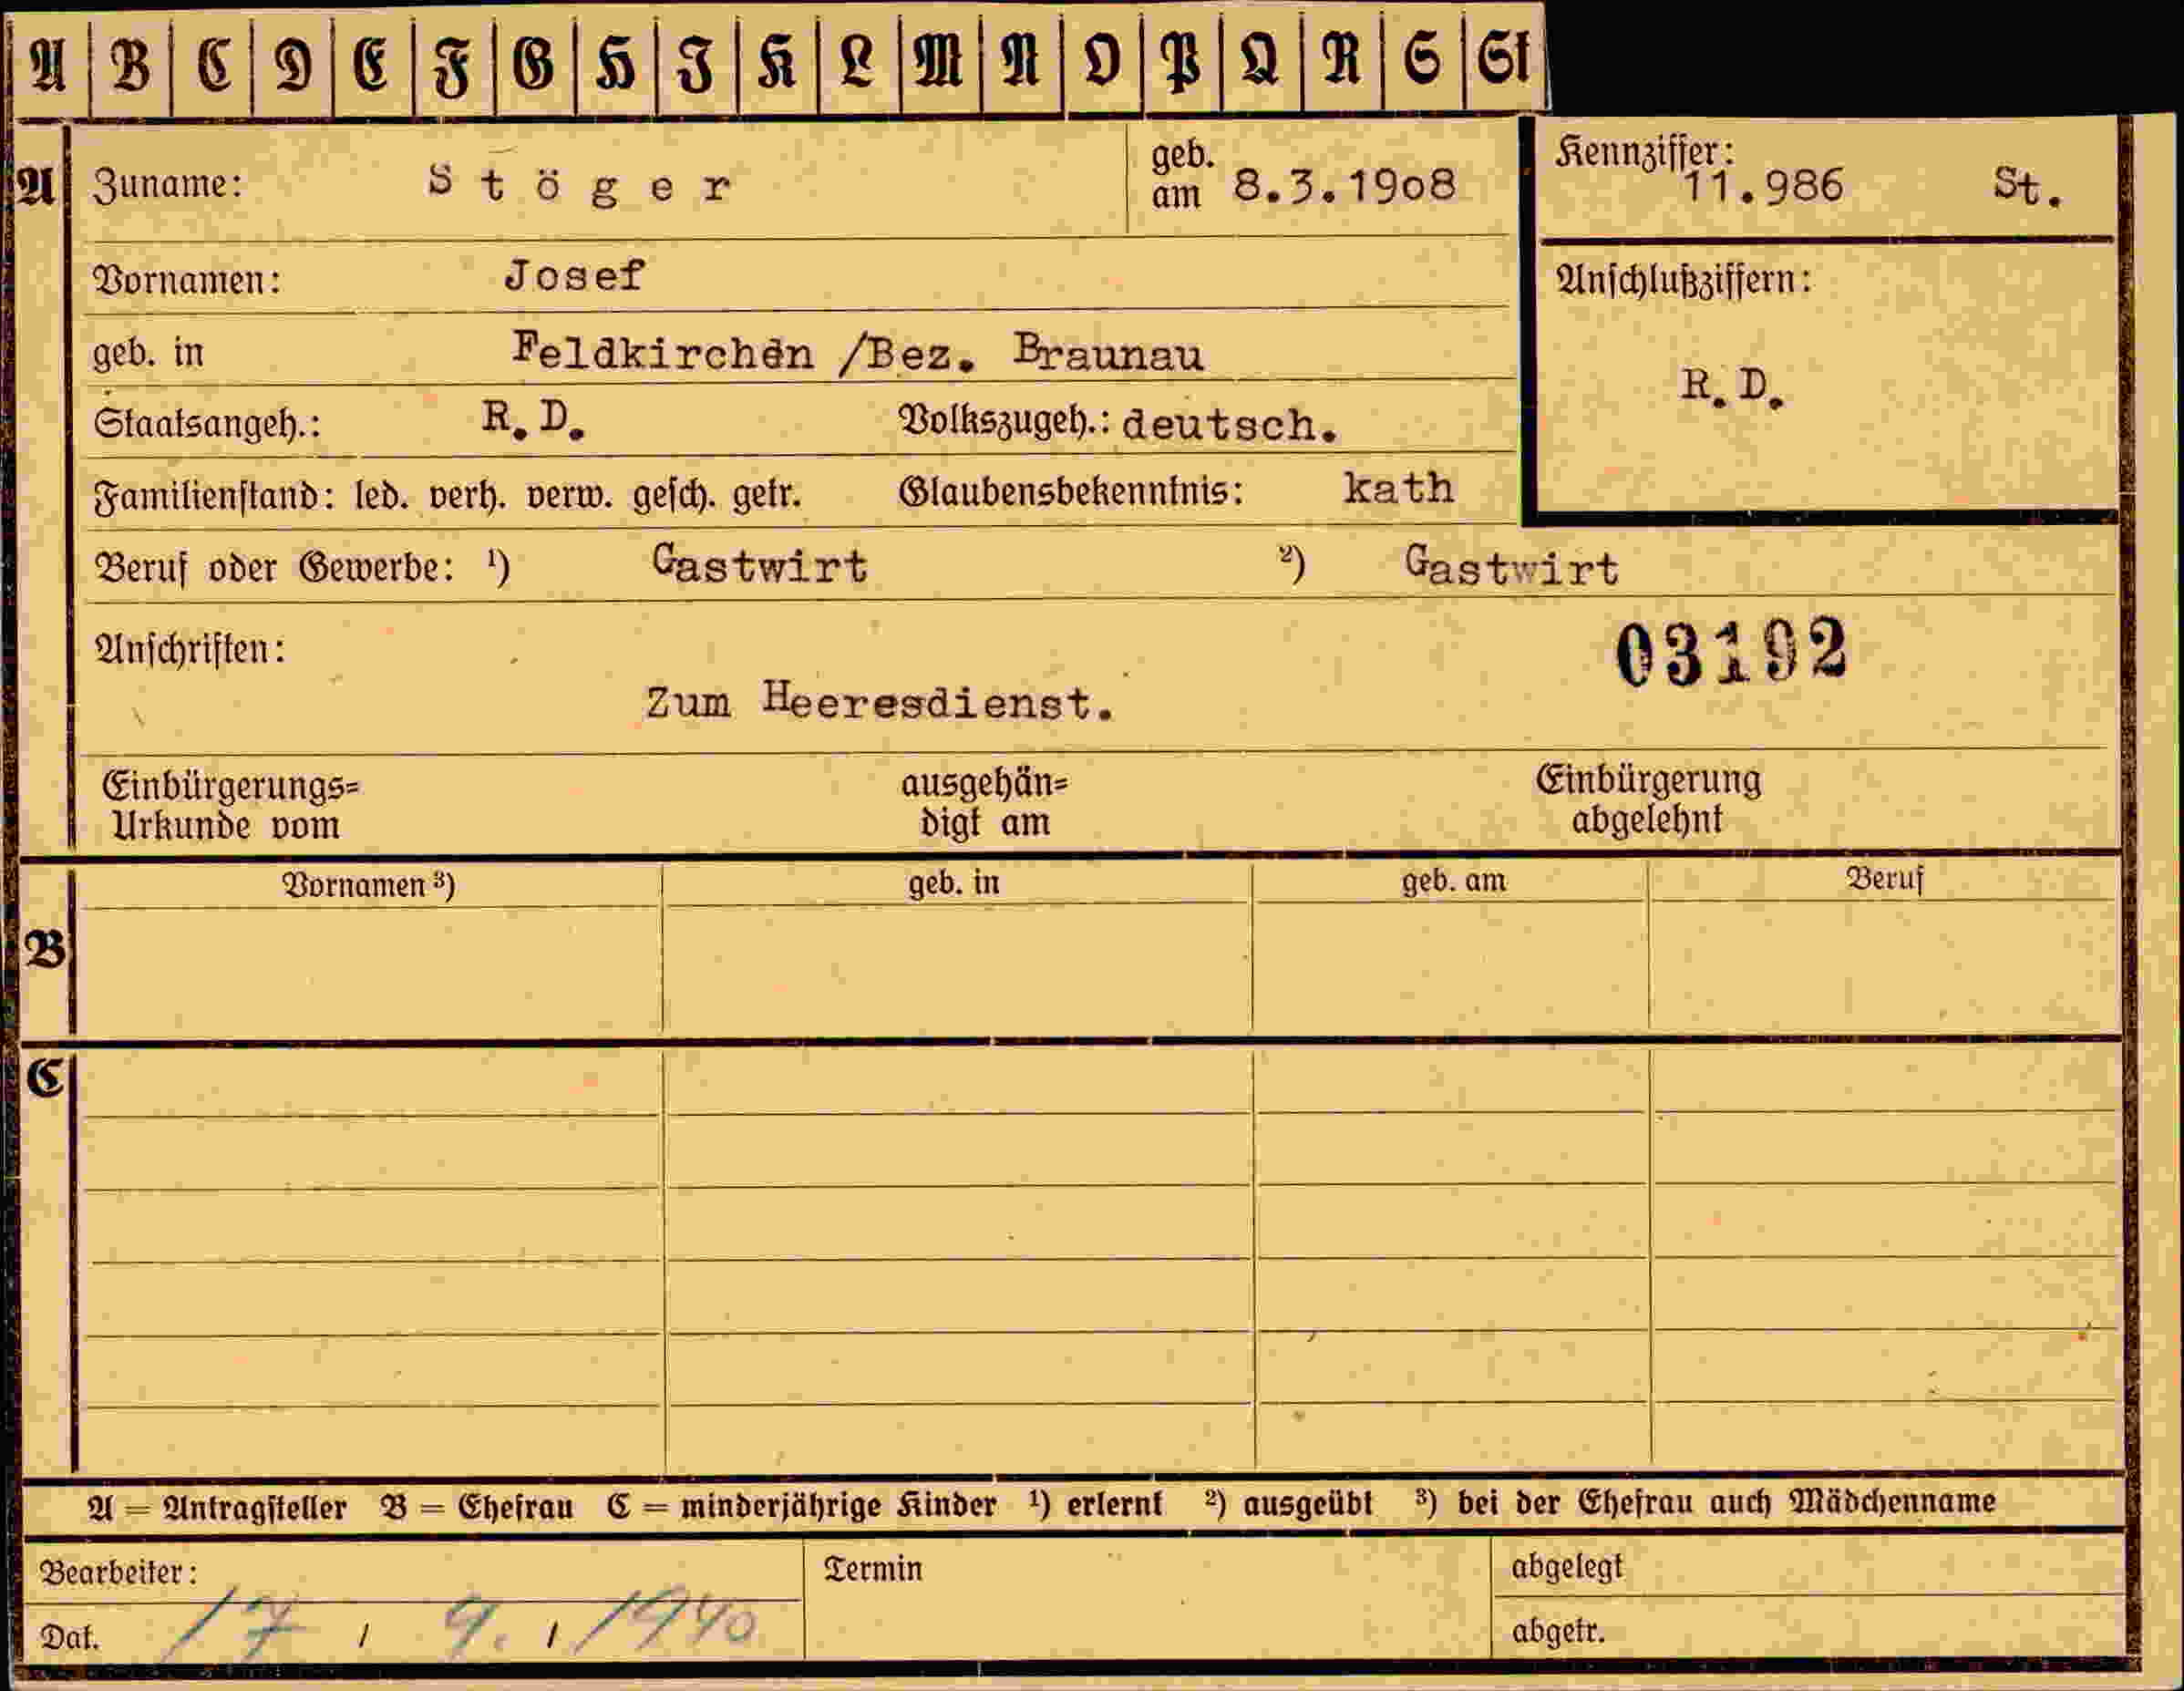 A B C D E F G H I K L M N O P Q R S St
A Zuname: Stöger geb. am 8.3.1908 Kennziffer: 11.986 St.
Vornamen: Josef Anschlußziffern:
geb. in Feldkirchen /Bez. Braunau R.D.
Staatsangeh.: R.D. Volkszugeh.: deutsch.
Familienstand: led. verh. verw. gesch. getr. Glaubensbekenntnis: kath
Beruf oder Gewerbe: ¹) Gastwirt ²) Gastwirt
Anschriften: 03192
Zum Heeresdienst.
Einbürgerungs= ausgehän= Einbürgerung
Urkunde vom digt am abgelehnt
Vornamen ³) geb. in geb. am Beruf
B
C
A = Antragsteller B = Ehefrau C = minderjährige Kinder ¹) erlernt ²) ausgeübt ³) bei der Ehefrau auch Mädchenname
Bearbeiter: Termin abgelegt
Dat. 17 / 9. / 1940 abgetr.